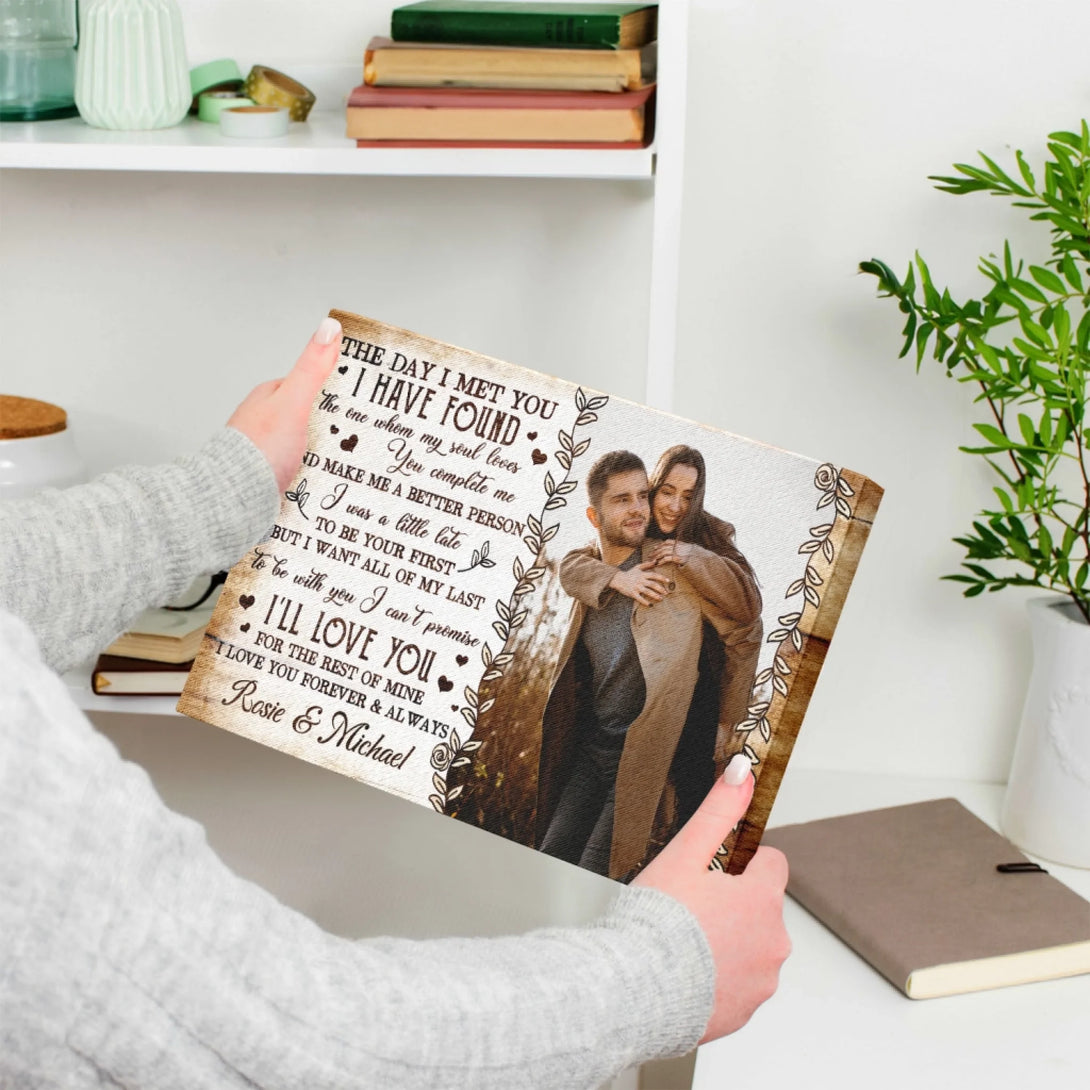 THE DAY I MET YOU
I HAVE FOUND
the one whom my soul loves
You complete me
ND MAKE ME A BETTER PERSON
I was a little late
TO BE YOUR FIRST
BUT I WANT ALL OF MY LAST
to be with you I can't promise
I'LL LOVE YOU
FOR THE REST OF MINE
I LOVE YOU FOREVER & ALWAYS
Rosie & Michael